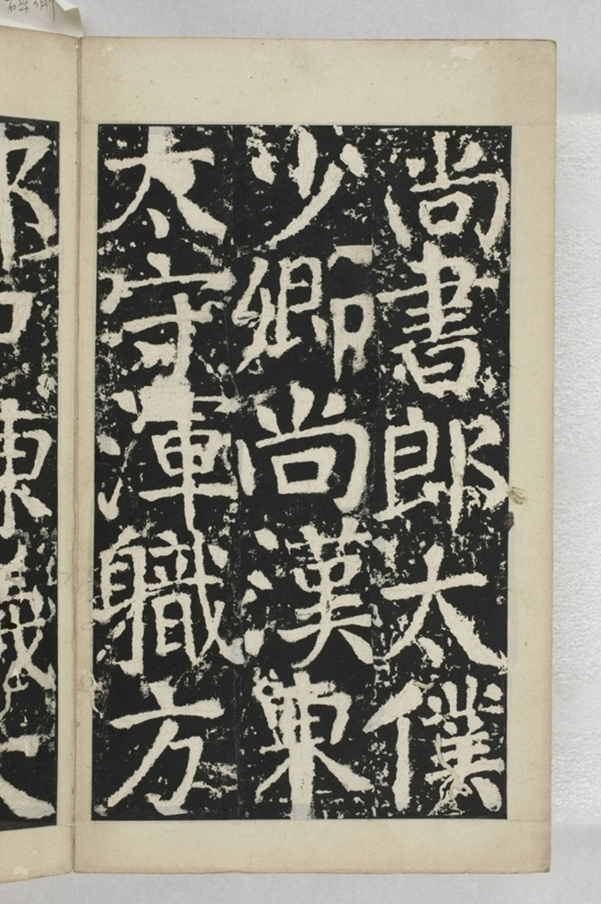 尚書郎太僕
少卿尚漢東
太守渾軄方